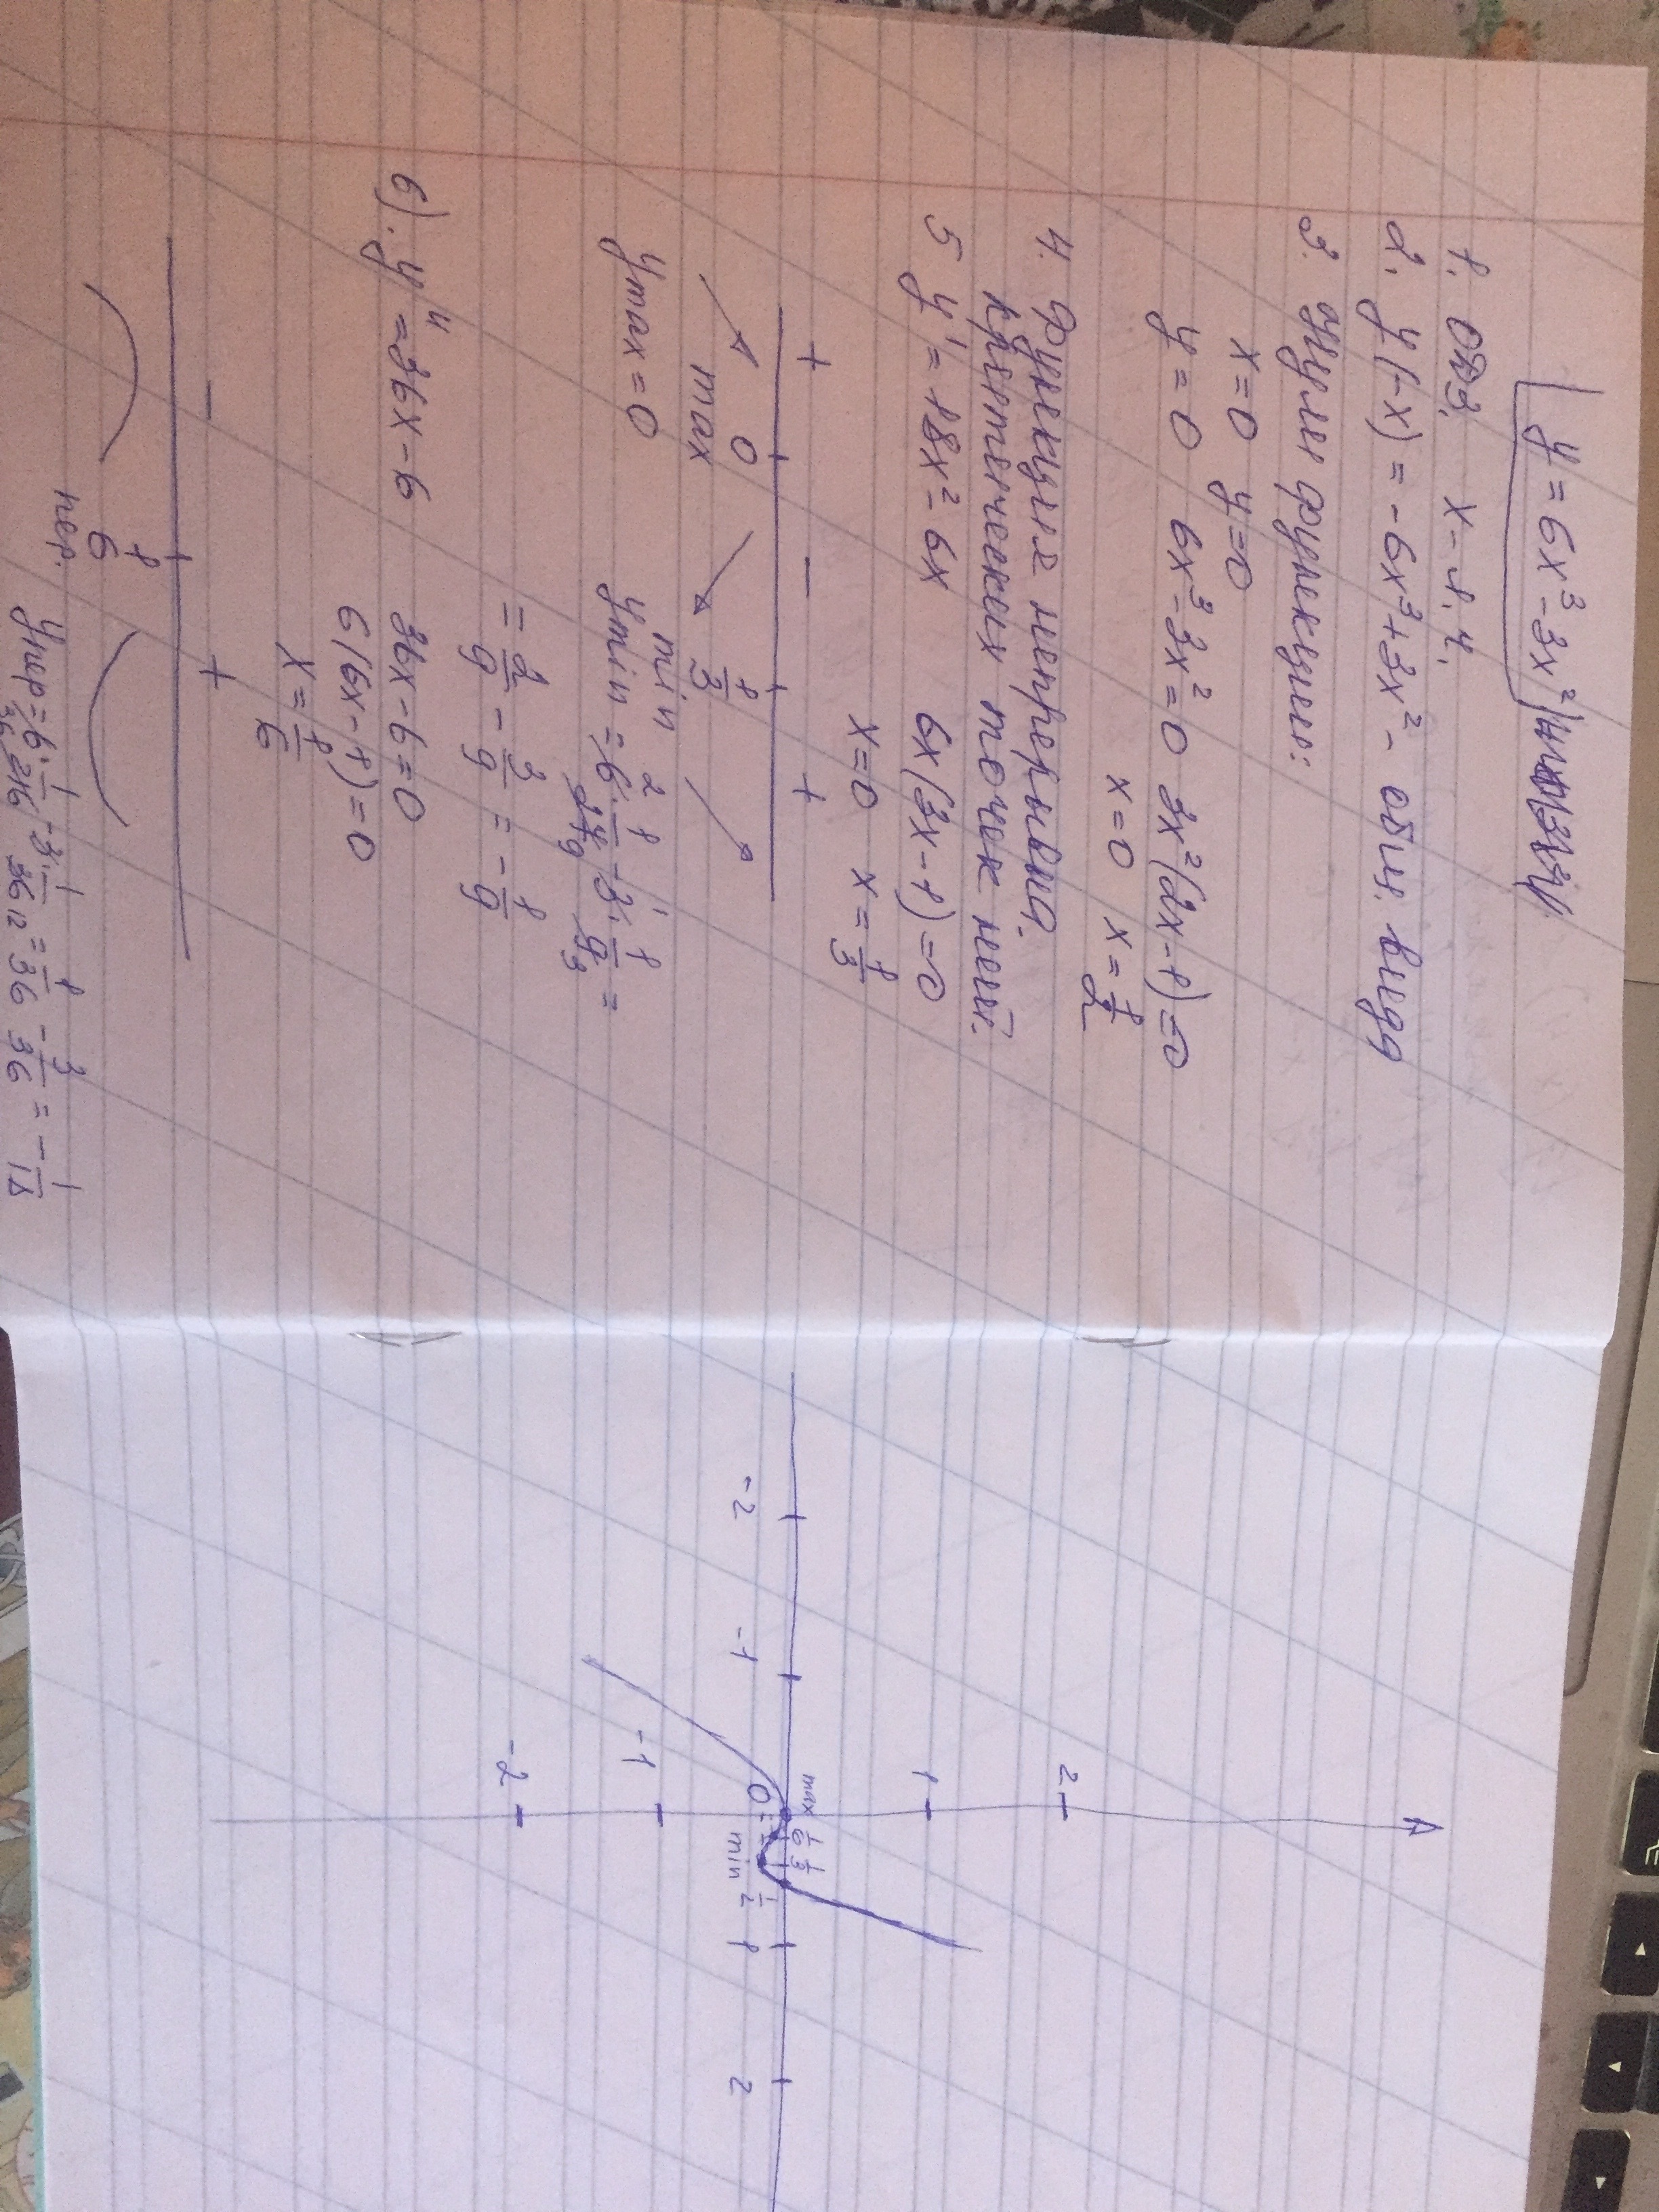 y = 6x³ - 3x²
1. ОДЗ. x - л. ч.
2. y(-x) = -6x³ + 3x² - общ. вида
3. Нули функции:
x=0 y=0
y=0 6x³-3x²=0 3x²(2x-1)=0
x=0 x=1/2
4. Функция непрерывна.
критических точек нет.
5 y' = 18x² - 6x 6x(3x-1)=0
x=0 x=1/3
+ - +
0 1/3
max min
ymax=0 ymin = 6·1/27 - 3·1/9 =
= 2/9 - 3/9 = -1/9
6). y'' = 36x - 6 36x-6=0
6(6x-1)=0
x=1/6
- +
1/6
пер. yпер=6·1/216 - 3·1/36 = 1/36 - 3/36 = -1/18
2
1
max 1/6 1/3
-2 -1 0 min 1/2 1 2
-1
-2